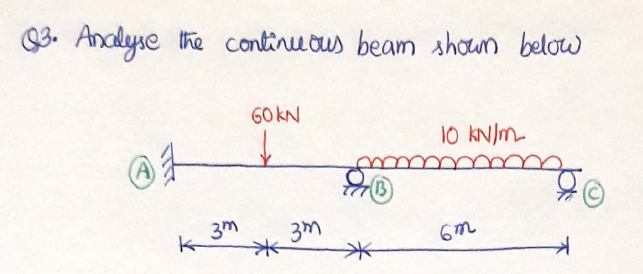 Q3. Analyse the continuous beam shown below
60 kN
10 kN/m
A
B
C
3m
3m
6m